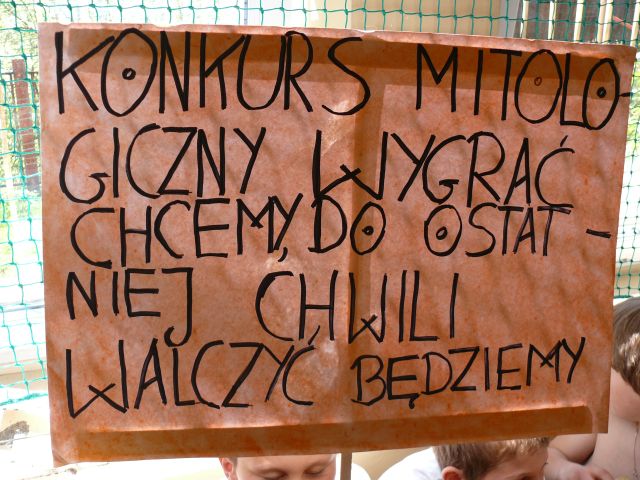 KONKURS MITOLO-
GICZNY WYGRAĆ
CHCEMY, DO OSTAT-
NIEJ CHWILI
WALCZYĆ BĘDZIEMY